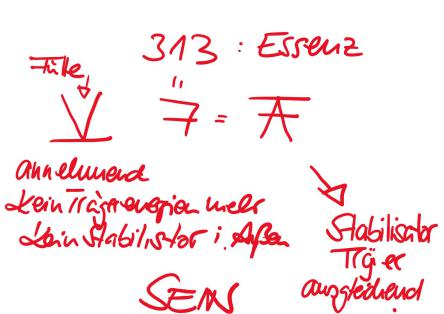 313 : Essenz
Fülle
"
V 7 = A
annehmend
kein Trägerenergien mehr
kein Stabilisator i. Außen
Stabilisator
Träger
ausgleichend
SEIN